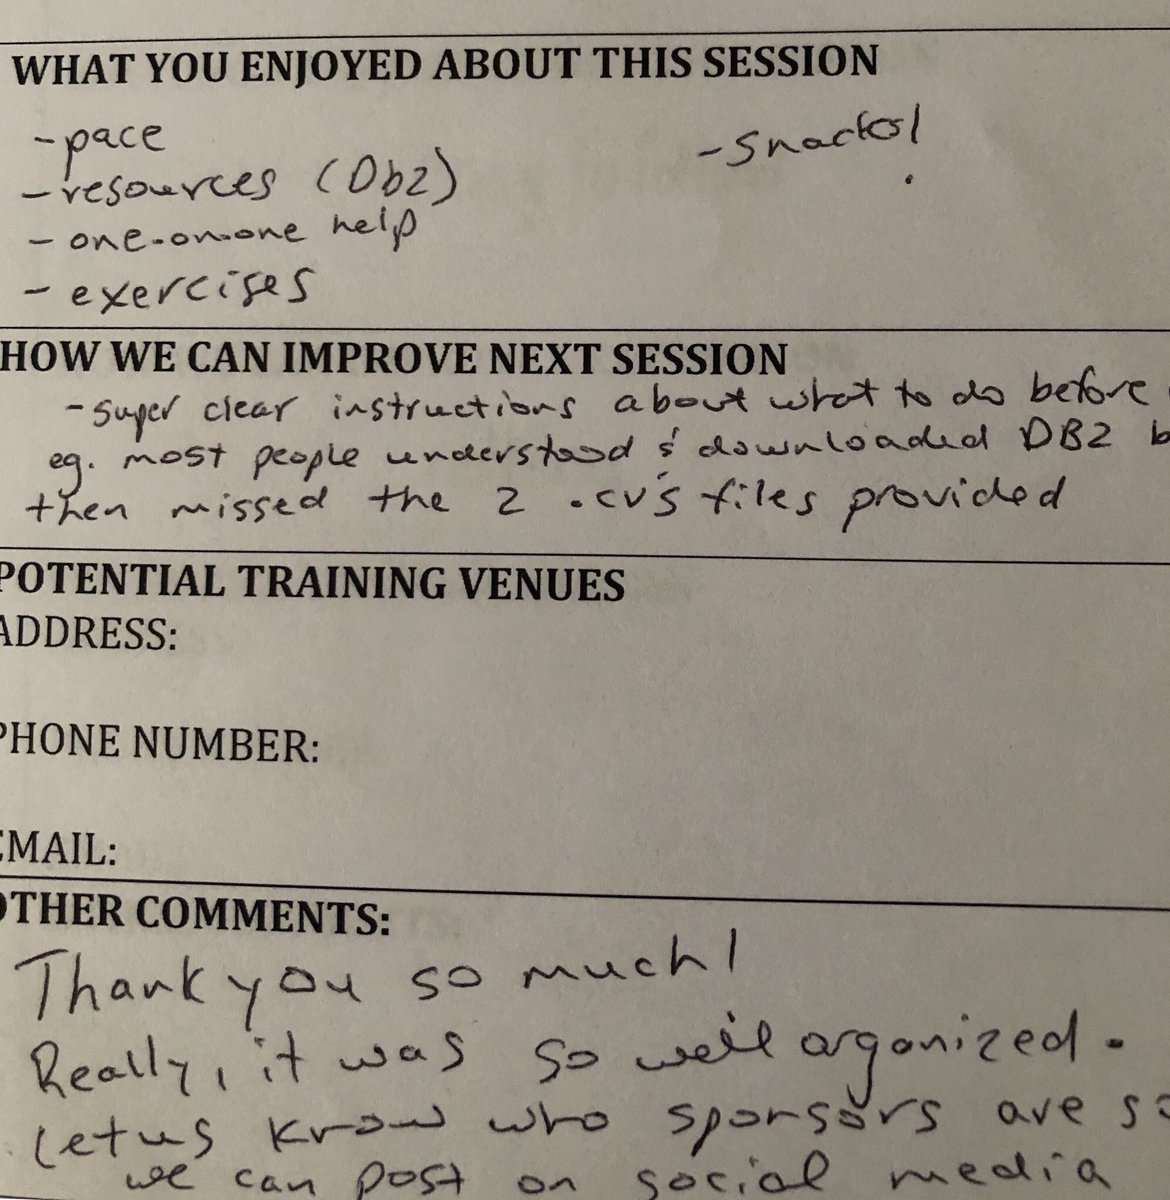 WHAT YOU ENJOYED ABOUT THIS SESSION
- pace
- resources (Db2)
- one-on-one help
- exercises
- snacks!
HOW WE CAN IMPROVE NEXT SESSION
- super clear instructions about what to do before
eg. most people understood & downloaded DB2 b
then missed the 2 .cv's files provided
POTENTIAL TRAINING VENUES
ADDRESS:
PHONE NUMBER:
EMAIL:
OTHER COMMENTS:
Thank you so much!
Really, it was so well organized.
Let us know who sponsors are so
we can post on social media